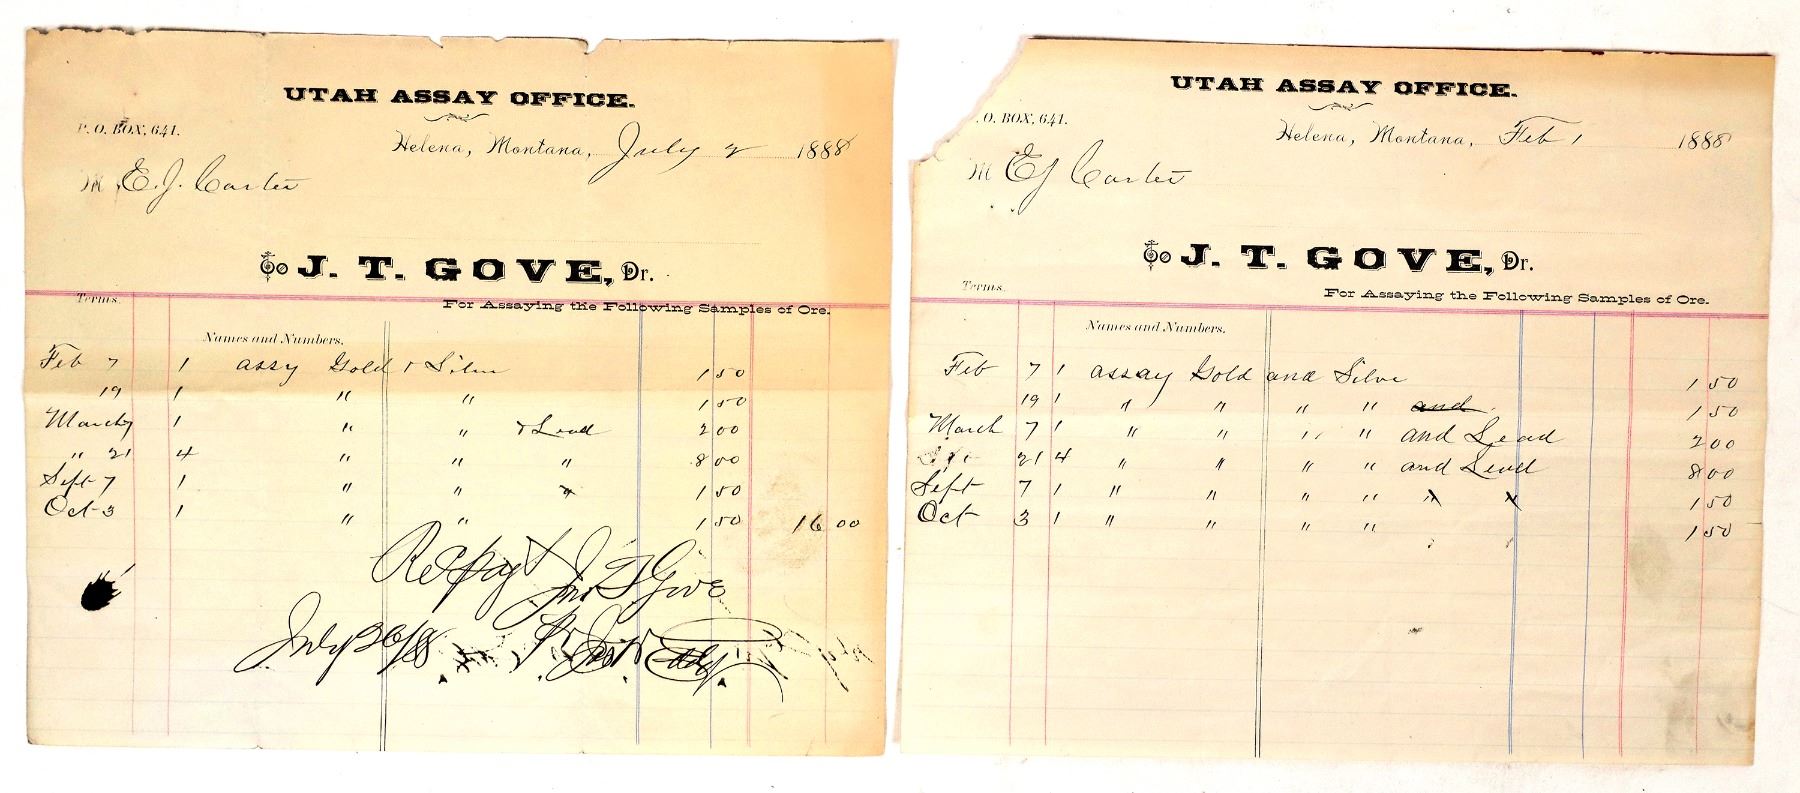 UTAH ASSAY OFFICE.
P. O. BOX, 641.
Helena, Montana, July 2 1888
M E. J. Carter
To J. T. GOVE, Dr.
Terms.
For Assaying the Following Samples of Ore.
Names and Numbers.
Feb 7 1 assy Gold & Silver 1 50
19 1 " " 1 50
March 7 1 " " & Lead 2 00
" 21 4 " " " 8 00
Sept 7 1 " " 1 50
Oct 3 1 " " 1 50 16 00
Rec payt Jno T Gove
July 26/88
UTAH ASSAY OFFICE.
. O. BOX, 641.
Helena, Montana, Feb 1 1888
M EJ Carter
To J. T. GOVE, Dr.
Terms.
For Assaying the Following Samples of Ore.
Names and Numbers.
Feb 7 1 assay Gold and Silve 1 50
19 1 " " " " and 1 50
March 7 1 " " " " and Lead 2 00
21 4 " " " " and Lead 8 00
Sept 7 1 " " " " 1 50
Oct 3 1 " " " " 1 50